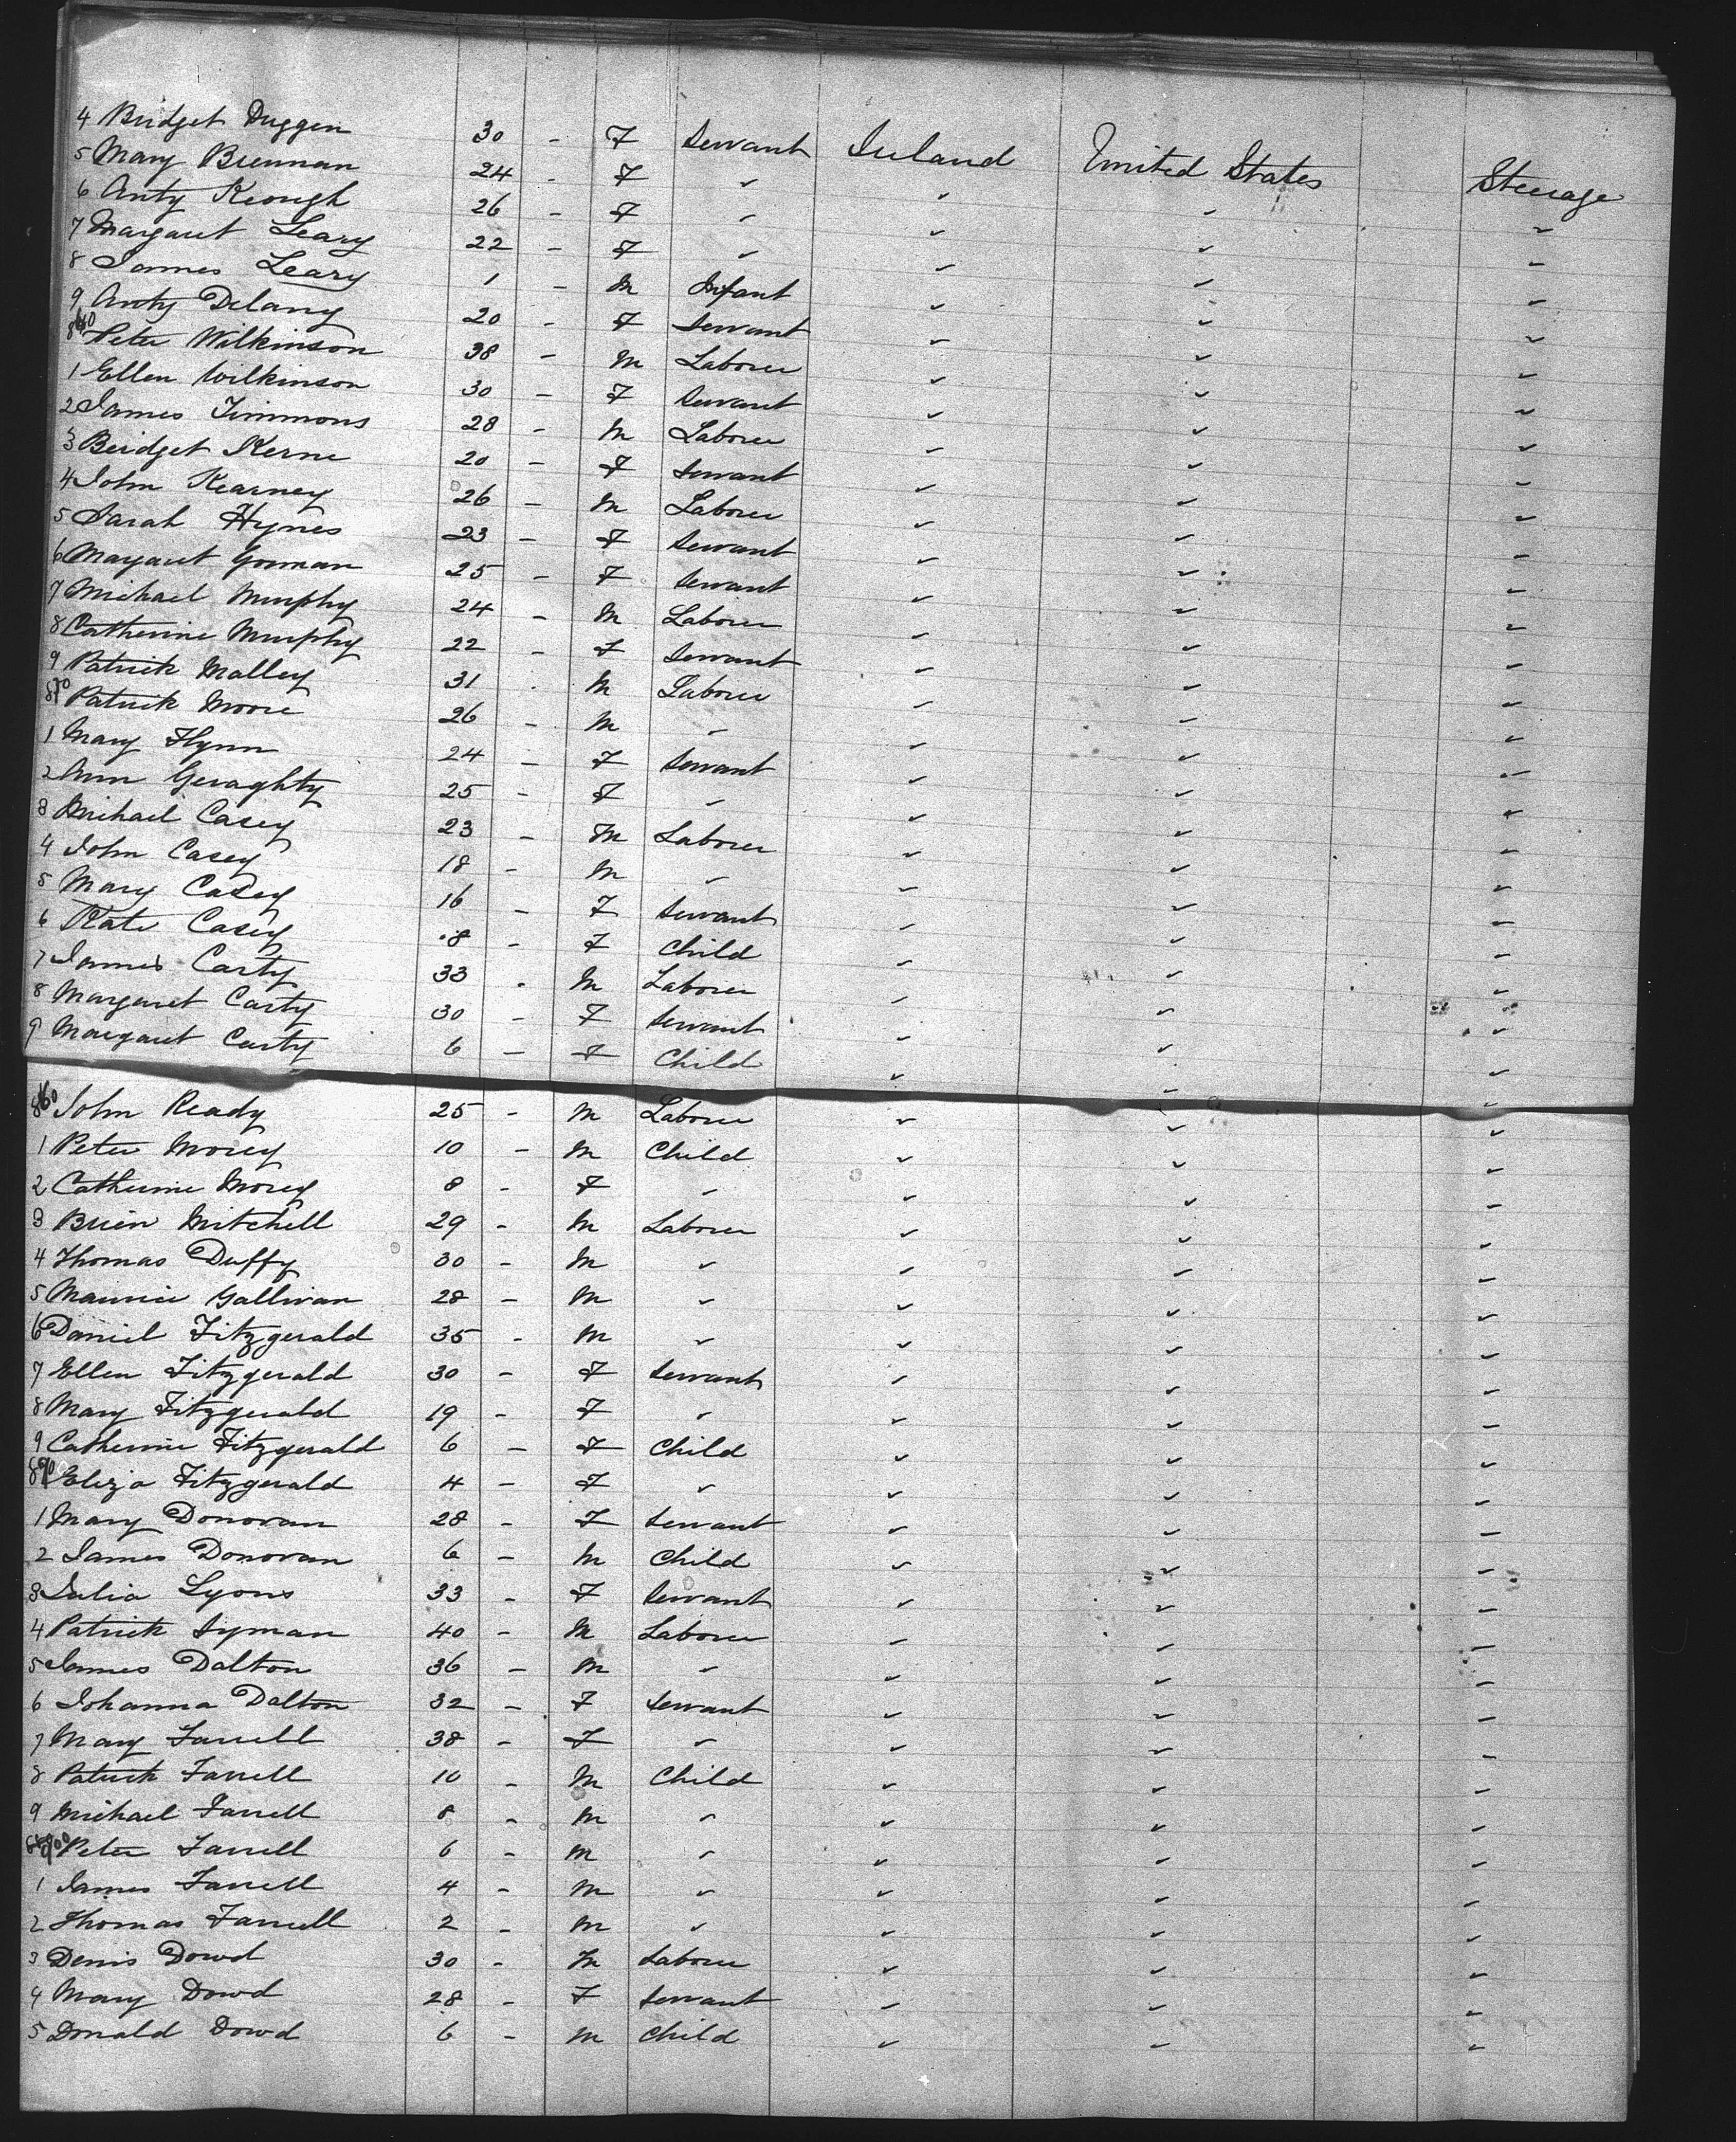 4 Bridget Duggen 30 - F Servant Ireland United States Steerage
5 Mary Brennan 24 - F " " " "
6 Anty Keough 26 - F " " " "
7 Margaret Leary 22 - F " " " "
8 James Leary 1 - M Infant " " "
9 Anty Delany 20 - F Servant " " "
Peter Wilkinson 38 - M Laborer " " "
1 Ellen Wilkinson 30 - F Servant " " "
2 James Timmons 28 - M Laborer " " "
3 Bridget Kerne 20 - F Servant " " "
4 John Kearney 26 - M Laborer " " "
5 Sarah Hynes 23 - F Servant " " "
6 Margaret Gorman 25 - F Servant " " "
7 Michael Murphy 24 - M Laborer " " "
8 Catherine Murphy 22 - F Servant " " "
9 Patrick Malley 31 - M Laborer " " "
870 Patrick Moore 26 - M " " " "
1 Mary Flynn 24 - F Servant " " "
2 Ann Geraghty 25 - F " " " "
3 Michael Casey 23 - M Laborer " " "
4 John Casey 18 - M " " " "
5 Mary Casey 16 - F Servant " " "
6 Kate Casey 8 - F Child " " "
7 James Carty 33 - M Laborer " " "
8 Margaret Carty 30 - F Servant " " "
9 Margaret Carty 6 - F Child " " "
John Ready 25 - M Laborer " " "
1 Peter Morey 10 - M Child " " "
2 Catherine Morey 8 - F " " " "
3 Brien Mitchell 29 - M Laborer " " "
4 Thomas Duffy 30 - M " " " "
5 Maurice Gallivan 28 - M " " " "
6 Daniel Fitzgerald 35 - M " " " "
7 Ellen Fitzgerald 30 - F Servant " " "
8 Mary Fitzgerald 19 - F " " " "
9 Catherine Fitzgerald 6 - F Child " " "
890 Eliza Fitzgerald 4 - F " " " "
1 Mary Donovan 28 - F Servant " " "
2 James Donovan 6 - M Child " " "
3 Julia Lyons 33 - F Servant " " "
4 Patrick Lyman 40 - M Laborer " " "
5 James Dalton 36 - M " " " "
6 Johanna Dalton 32 - F Servant " " "
7 Mary Farrell 38 - F " " " "
8 Patrick Farrell 10 - M Child " " "
9 Michael Farrell 8 - M " " " "
900 Peter Farrell 6 - M " " " "
1 James Farrell 4 - M " " " "
2 Thomas Farrell 2 - M " " " "
3 Denis Dowd 30 - M Laborer " " "
4 Mary Dowd 28 - F Servant " " "
5 Donald Dowd 6 - M Child " " "